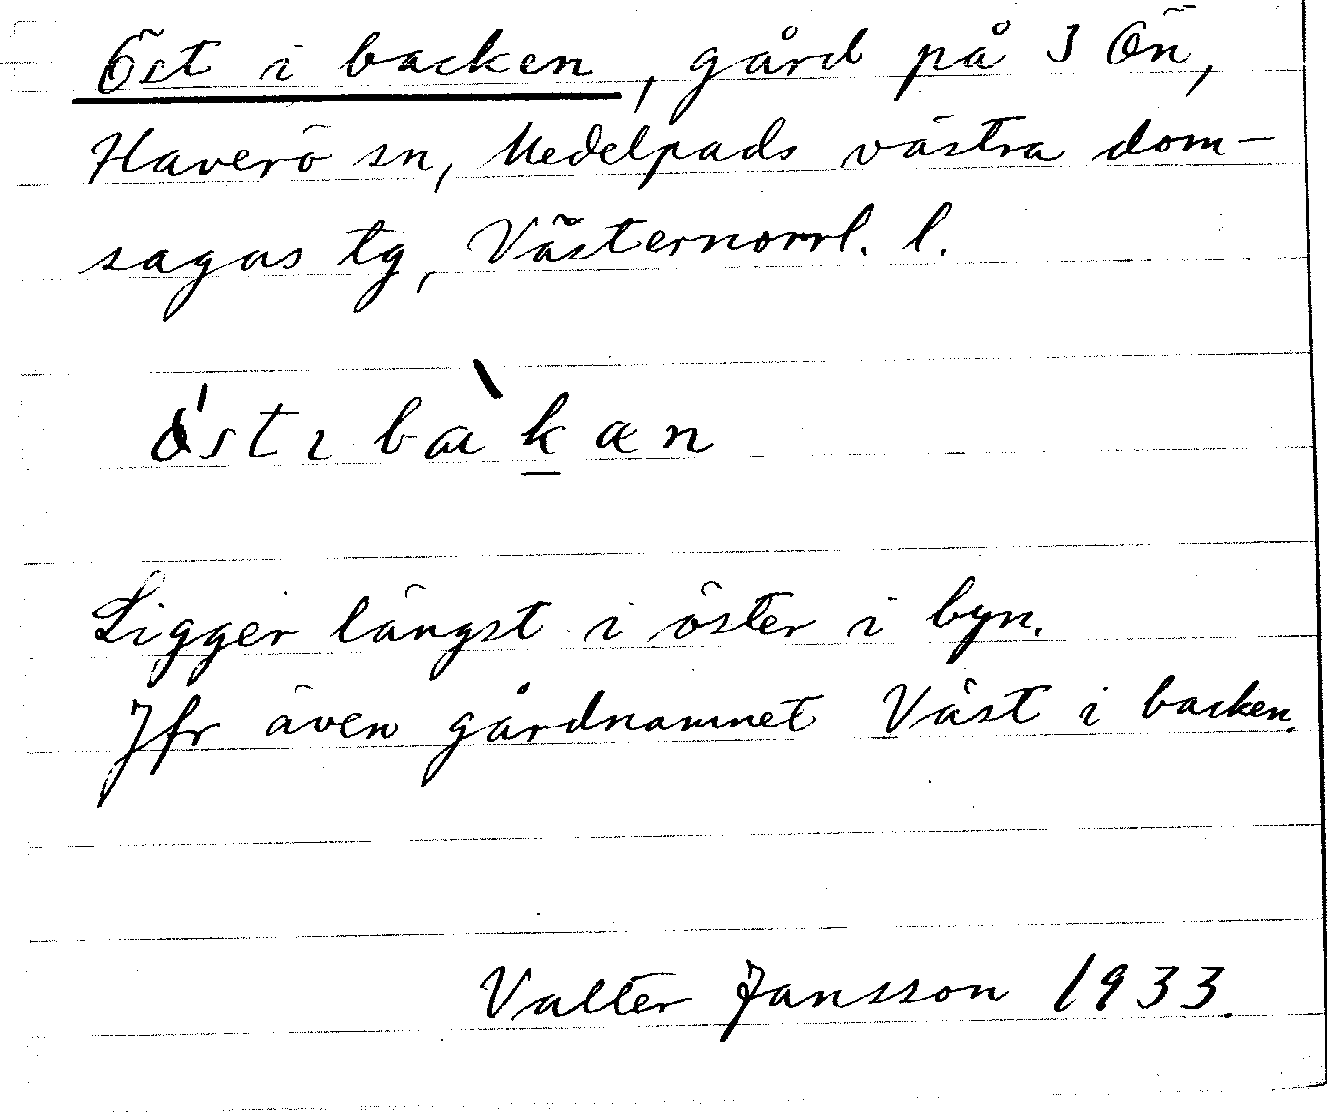 Öst i backen, gård på 3 Ön,
Haverö sn, Medelpads västra dom-
sagas tg, Västernorrl. l.
östı bakan
Ligger längst i öster i byn.
Jfr även gårdnamnet Väst i backen.
Valter Jansson 1933.